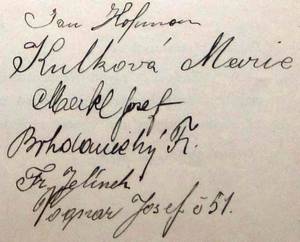 Jan Hofman
Kulková Marie
Markl Josef
Bohdanecký Fr.
Fr. Jelínek
Josef č 51.